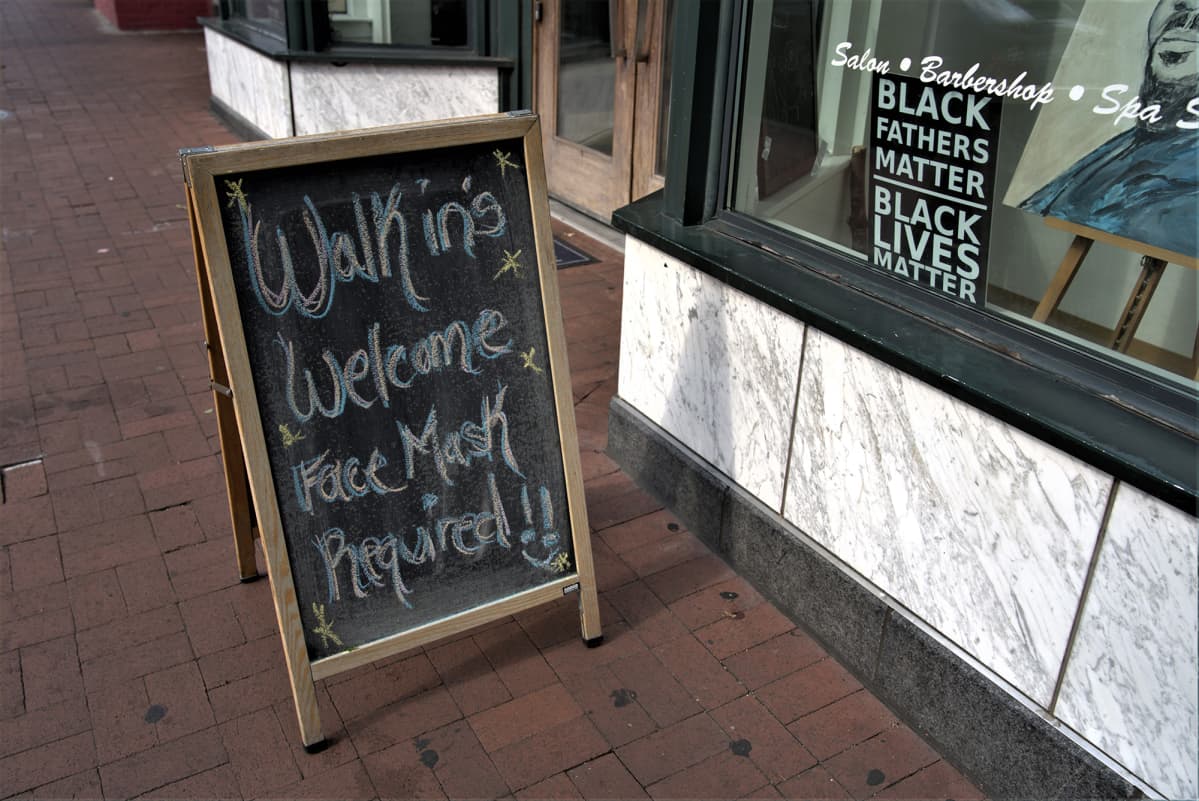 Walk in's
Welcome
Face Mask
Required!!
Salon • Barbershop • Spa S
BLACK
FATHERS
MATTER
BLACK
LIVES
MATTER